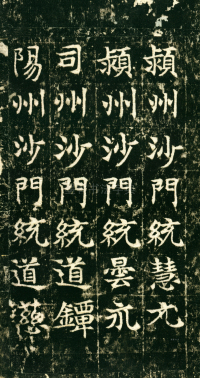 潁州沙門統慧尤
潁州沙門統曇永
司州沙門統道鐔
陽州沙門統道